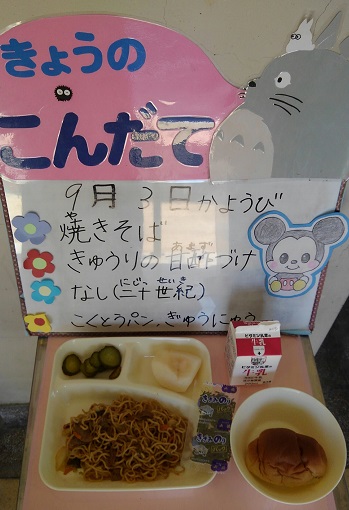 きょうの
こんだて
9月3日かようび
や
焼きそば
あまず
きゅうりの甘酢づけ
にじっせいき
なし(二十世紀)
こくとうパン、ぎゅうにゅう
牛乳
牛乳